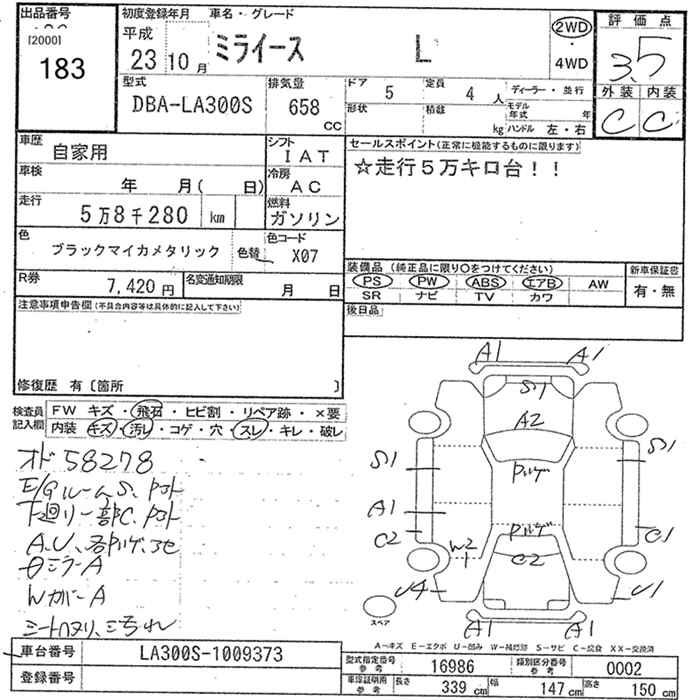 出品番号
[2000]
183
初度登録年月 車名・グレード
平成
23 10月 ミライース L
2WD
・
4WD
評価点
3.5
外装 内装
C C
型式
DBA-LA300S
排気量
658
CC
ドア 5 定員 4 人 ディーラー・並行
形状 積載 kg モデル年式 年
ハンドル 左・右
車歴
自家用
シフト
IAT
車検
年 月( 日)
冷房
AC
走行
5万8千280 km
燃料
ガソリン
色
ブラックマイカメタリック 色替
色コード
X07
R券
7,420円
名変通知期限
月 日
セールスポイント(正常に機能するものに限ります)
☆走行5万キロ台!!
装備品 (純正品に限り○をつけてください)
PS PW ABS エアB AW
SR ナビ TV カワ
新車保証書
有・無
後日品
注意事項申告欄(不具合内容等は具体的に記入して下さい)
修復歴 有〔箇所 〕
検査員
記入欄
FW キズ・飛石・ヒビ割・リペア跡・×要
内装 キズ・汚レ・コゲ・穴・スレ・キレ・破レ
オド58278
E/GルームS、
下廻り一部C、
A.U、
ミラーA
WカバーA
A1 A1
S1
A2
S1 S1
A1
C2 C1
W2
C2
U4 U1
A1 A1
スペア
A-キズ E-エクボ U-凹み W-補修跡 S-サビ C-腐食 XX-交換済
車台番号 LA300S-1009373
登録番号
型式指定番号
参考
16986
類別区分番号
参考
0002
車庫証明用
参考
長さ 339 cm 幅 147 cm 高さ 150 cm